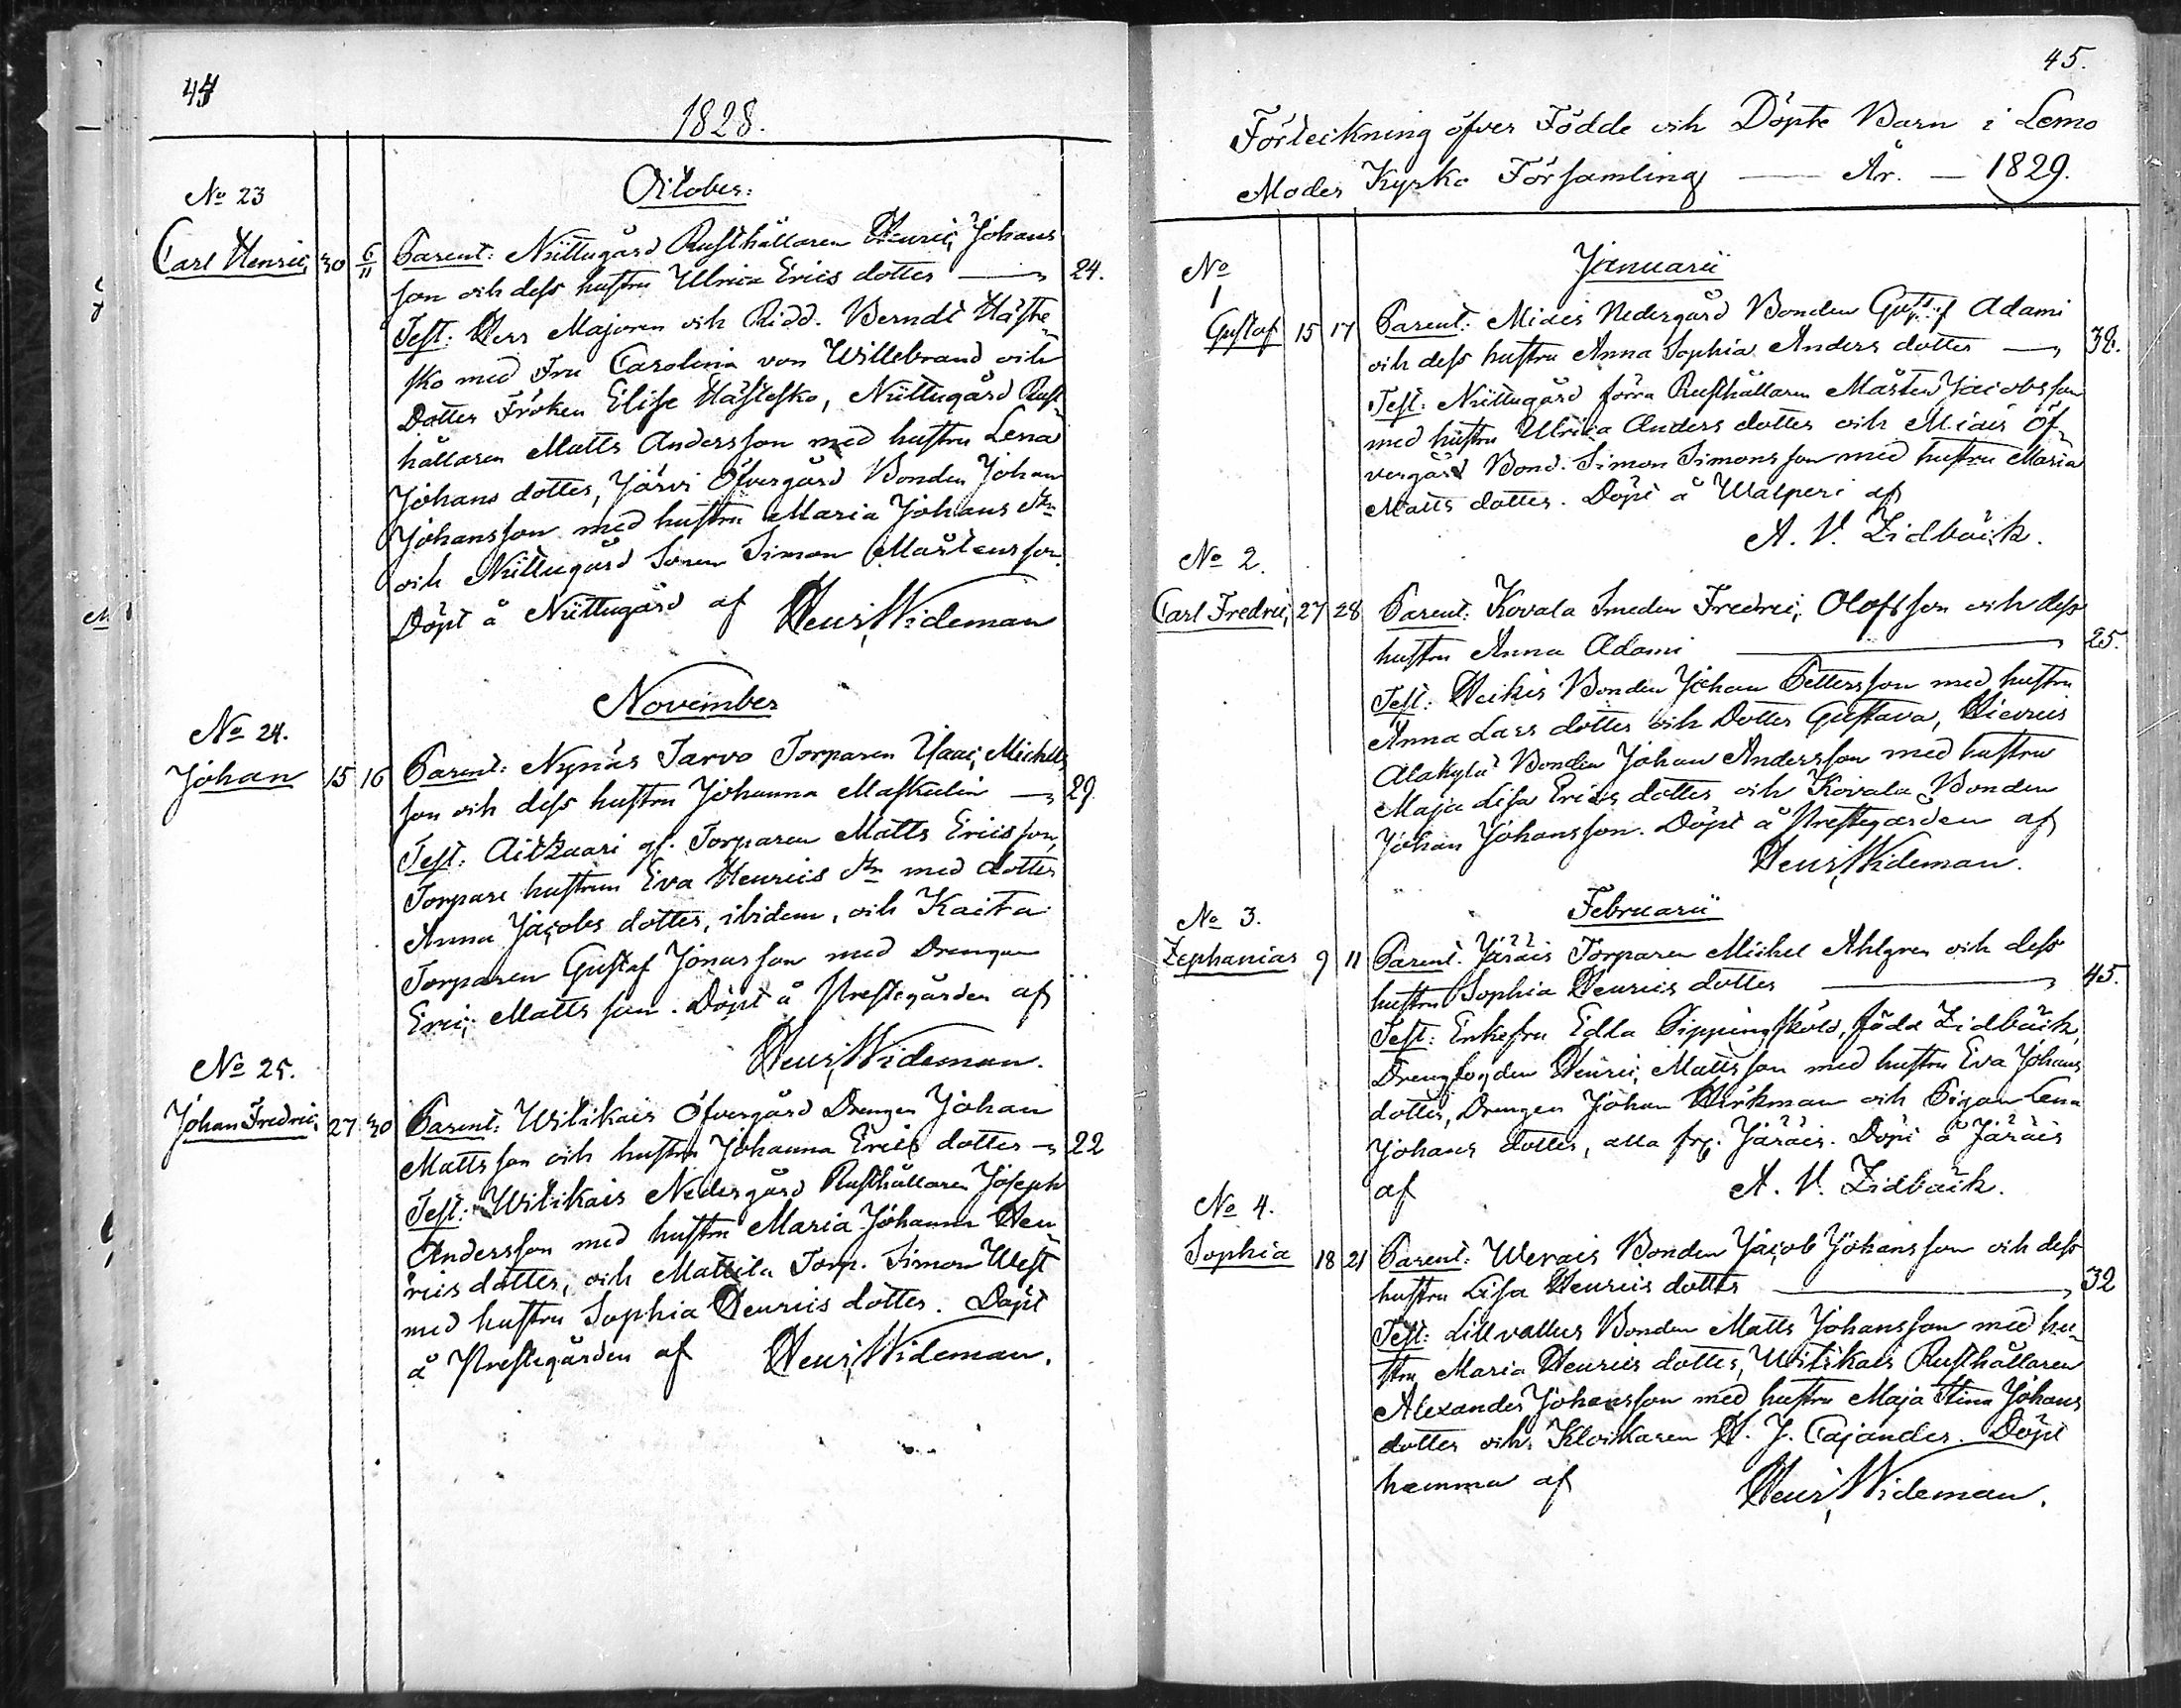 44
1828.
October:
No 23
Carl Henric, 30 6/11 Parent: Niittugård Rusthållaren Henric, Johans
son och dess hustru Ulrica Erics dotter — 24.
Test: Herr Majoren och Ridd. Berndt Häste
sko med Fru Carolina von Willebrand och
Dotter Fröken Elise Hästesko, Niittugård Rust
hållaren Matts Andersson med hustru Lena
Johans dotter, Järvi Öfvergård Bonden Johan
Johansson med hustru Maria Johans dr
och Niittugård Sonen Simon Mårtensson.
Döpt å Niittugård af Henr, Wideman
November
No 24.
Johan 15 16 Parent: Nynäs Tarvo Torparen Isaac, Michels
son och dess hustru Johanna Maskulin — 29.
Test: Aitzaari gf. Torparen Matts Ericsson,
Torpare hustrun Eva Henrics dr med dotter
Anna Jacobs dotter, ibidem, och Kaita
Torparen Gustaf Jonasson med Drengen
Eric, Matts son. Döpt å Prestegården af
Henr, Wideman.
No 25.
Johan Fredric, 27 30 Parent: Witikais Öfvergård Drengen Johan
Mattsson och hustru Johanna Erics dotter — 22
Test: Witikais Nedergård Rusthållaren Joseph
Andersson med hustru Maria Johanna Hen
rics dotter, och Mattila Torp. Simon West
med hustru Sophia Henrics dotter. Döpt
å Prestegården af Henr, Wideman.
45.
Förteckning öfver Födde och Döpte Barn i Lemo
Moder Kyrko Församling — År. — 1829.
Januarii
No
1
Gustaf 15 17 Parent: Micais Nedergård Bonden Gustaf Adami
och dess hustru Anna Sophia Anders dotter — 38.
Test: Niittugård förra Rusthållaren Mårten Jacobsson
med hustru Ulrica Anders dotter och Micais Öf
vergård Bond. Simon Simonsson med hustru Maria
Matts dotter. Döpt å Walperi af
A. V. Zidbäck.
No 2.
Carl Fredric, 27 28 Parent: Kovala Smeden Fredric, Olofsson och dess
hustru Anna Adami — 25.
Test: Heikis Bonden Johan Pettersson med hustru
Anna Lars dotter och Dotter Gustava,
Alakylä Bonden Johan Andersson med hustru
Maja Lisa Erics dotter och Kovala Bonden
Johan Johansson. Döpt å Prestegården af
Henr, Wideman.
Februarii
No 3.
Zephanias 9 11 Parent. Järäis Torparen Michel Ahlgren och dess
hustru Sophia Henrics dotter — 45.
Test: Enkefru Edla Pippingsköld, född Zidbäck,
Drengfogden Henric, Mattsson med hustru Eva Johans
dotter, Drengen Johan Wirkman och Pigan Lena
Johans dotter, alla frg. Järäis. Döpt å Järäis
af A. V. Zidbäck.
No 4.
Sophia 18 21 Parent: Werais Bonden Jacob Johansson och dess
hustru Lisa Henrics dotter — 32
Test: Lillvallus Bonden Matts Johansson med hu
stru Maria Henrics dotter, Witikais Rusthållaren
Alexander Johansson med hustru Maja Stina Johans
dotter och Klockaren H. J. Cajander. Döpt
hemma af Henr, Wideman.